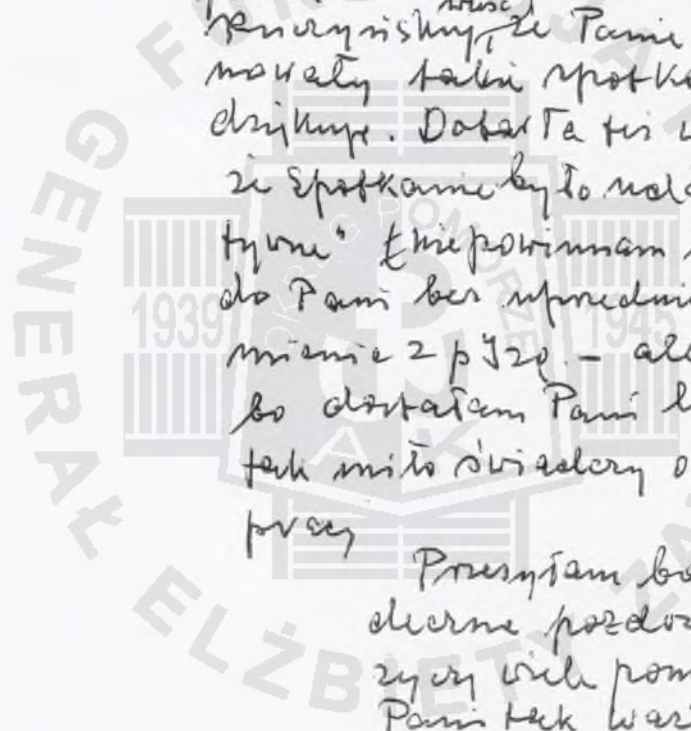 że Panie
nowały takie spotka
dziękuję. Dotarła też
że spotkanie było nada
tywne" i nie powinnam
do Pani bez uprzednie
mienia z p Izą – ale
bo dostałam Pani l
tak miło świadczy o
pracy
Przesyłam
deczne pozdro
życzy wiele pom
Pani tak waż
FUNDACJA
GENERAŁ
ELŻBIETY ZA
1939
1945
OKRĘG POMORZE
AK